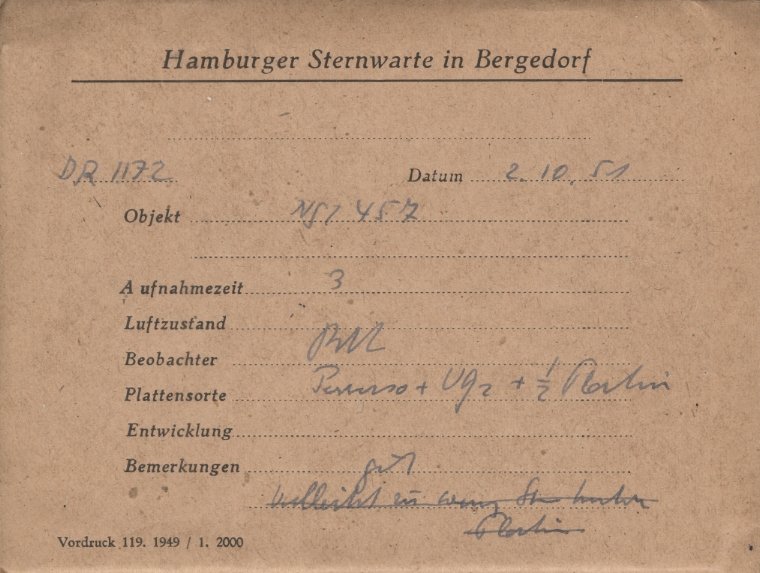 Hamburger Sternwarte in Bergedorf
DR 1172 Datum 2. 10. 51
Objekt 457
Aufnahmezeit 3
Luftzustand
Beobachter
Plattensorte Perutz + UG2 + 1/2
Entwicklung
Bemerkungen gut
vielleicht zu wenig
Vordruck 119. 1949 / 1. 2000